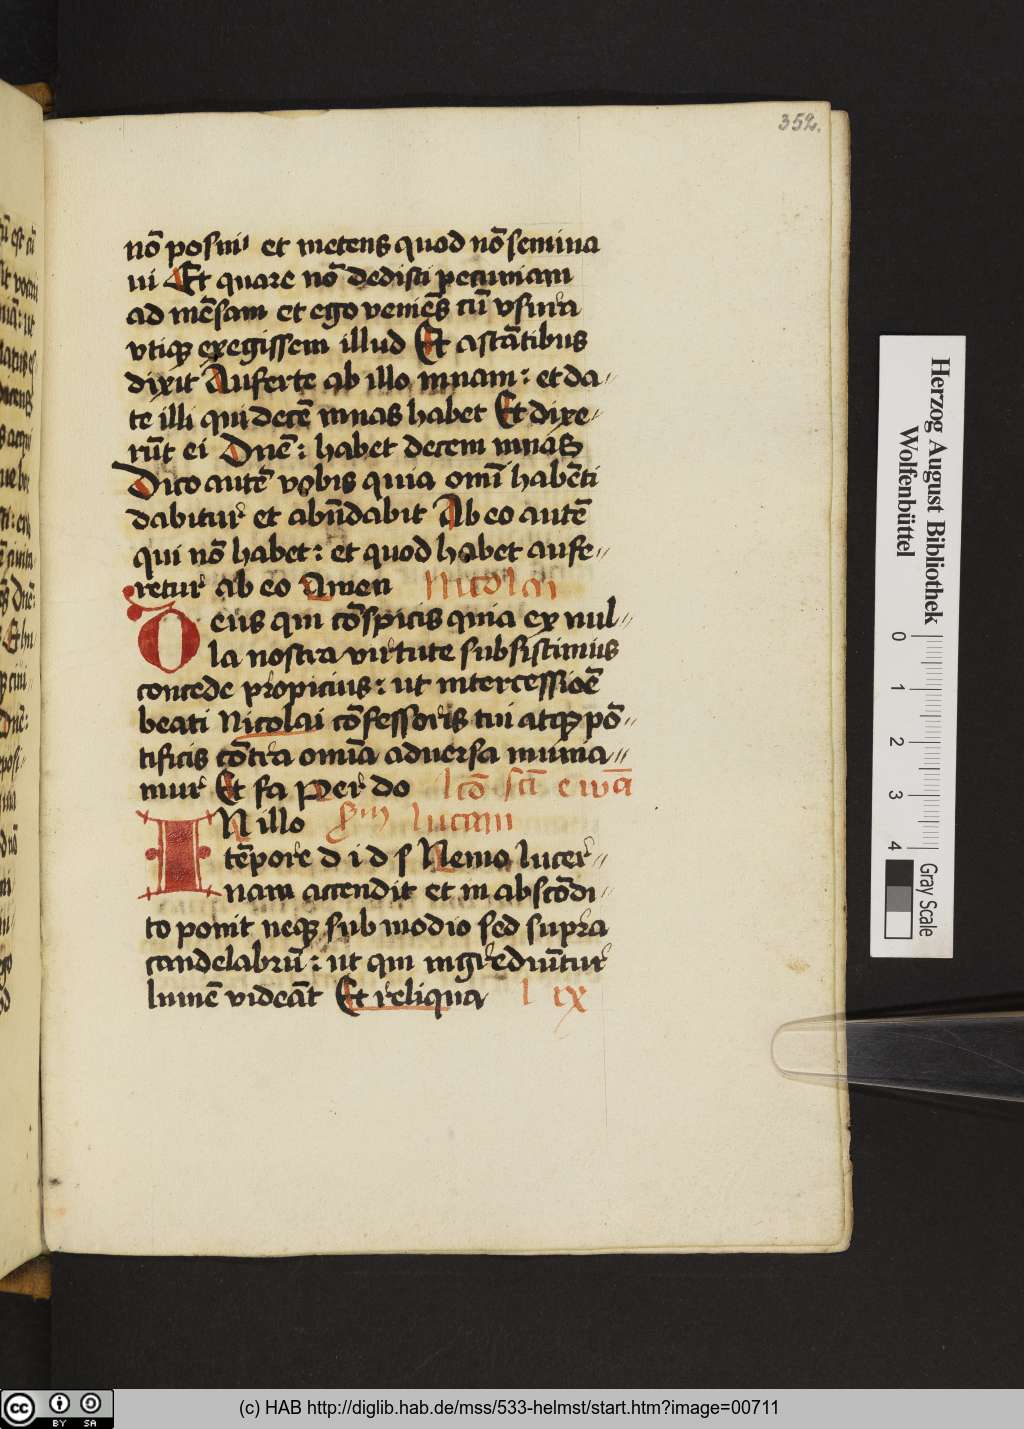 352.
nō posui et metens quod nō semina
ui Et quare nō dedisti pecuniam
ad mēsam et ego veniēs cū vsura
vtiqꝫ exegissem illud Et astātibus
dixit Auferte ab illo mnam : et da
te illi qui decē mnas habet Et dixe
rūt ei Dnē : habet decem mnas
Dico autē vobis quia omī habēti
dabitur et abūdabit Ab eo autē
qui nō habet : et quod habet aufe
retur ab eo Amen Nicolai
Deus qui cōspicis quia ex nul
la nostra virtute subsistimus
concede propicius : ut intercessiōē
beati Nicolai cōfessoris tui atqꝫ pō
tificis cōtra omīa aduersa munia
mur Et fa per do lcō scī ewā
IN illo sm lucam
tēpore d i d s Nemo lucer
nam accendit et in abscōdi
to ponit neqꝫ sub modio sed supra
candelabrū : ut qui ingrediūtur
lumē videāt Et reliqua l ix
Herzog August Bibliothek
Wolfenbüttel
0 1 2 3 4
Gray Scale
cc BY SA
(c) HAB http://diglib.hab.de/mss/533-helmst/start.htm?image=00711